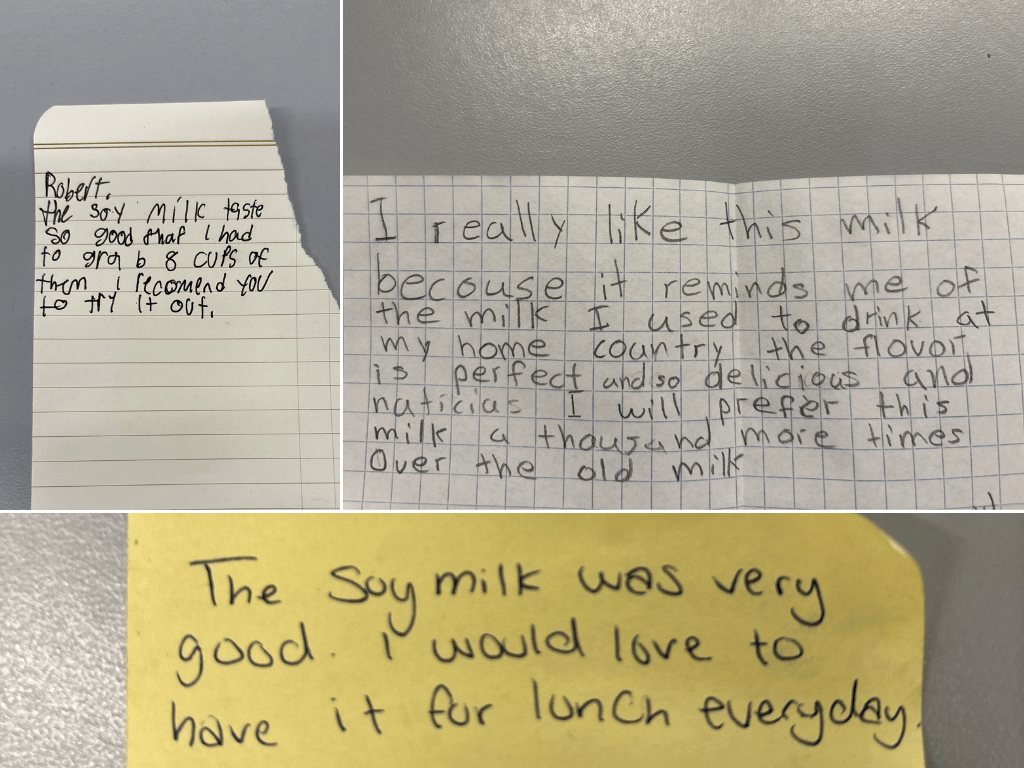 Robert.
the soy milk taste
so good that I had
to grab 8 cups of
them I recomend you
to try it out.
I really like this milk
becouse it reminds me of
the milk I used to drink at
my home country the flovor
is perfect and so delicious and
naticias I will prefer this
milk a thousand more times
Over the old milk
The Soy milk was very
good. I would love to
have it for lunch everyday.